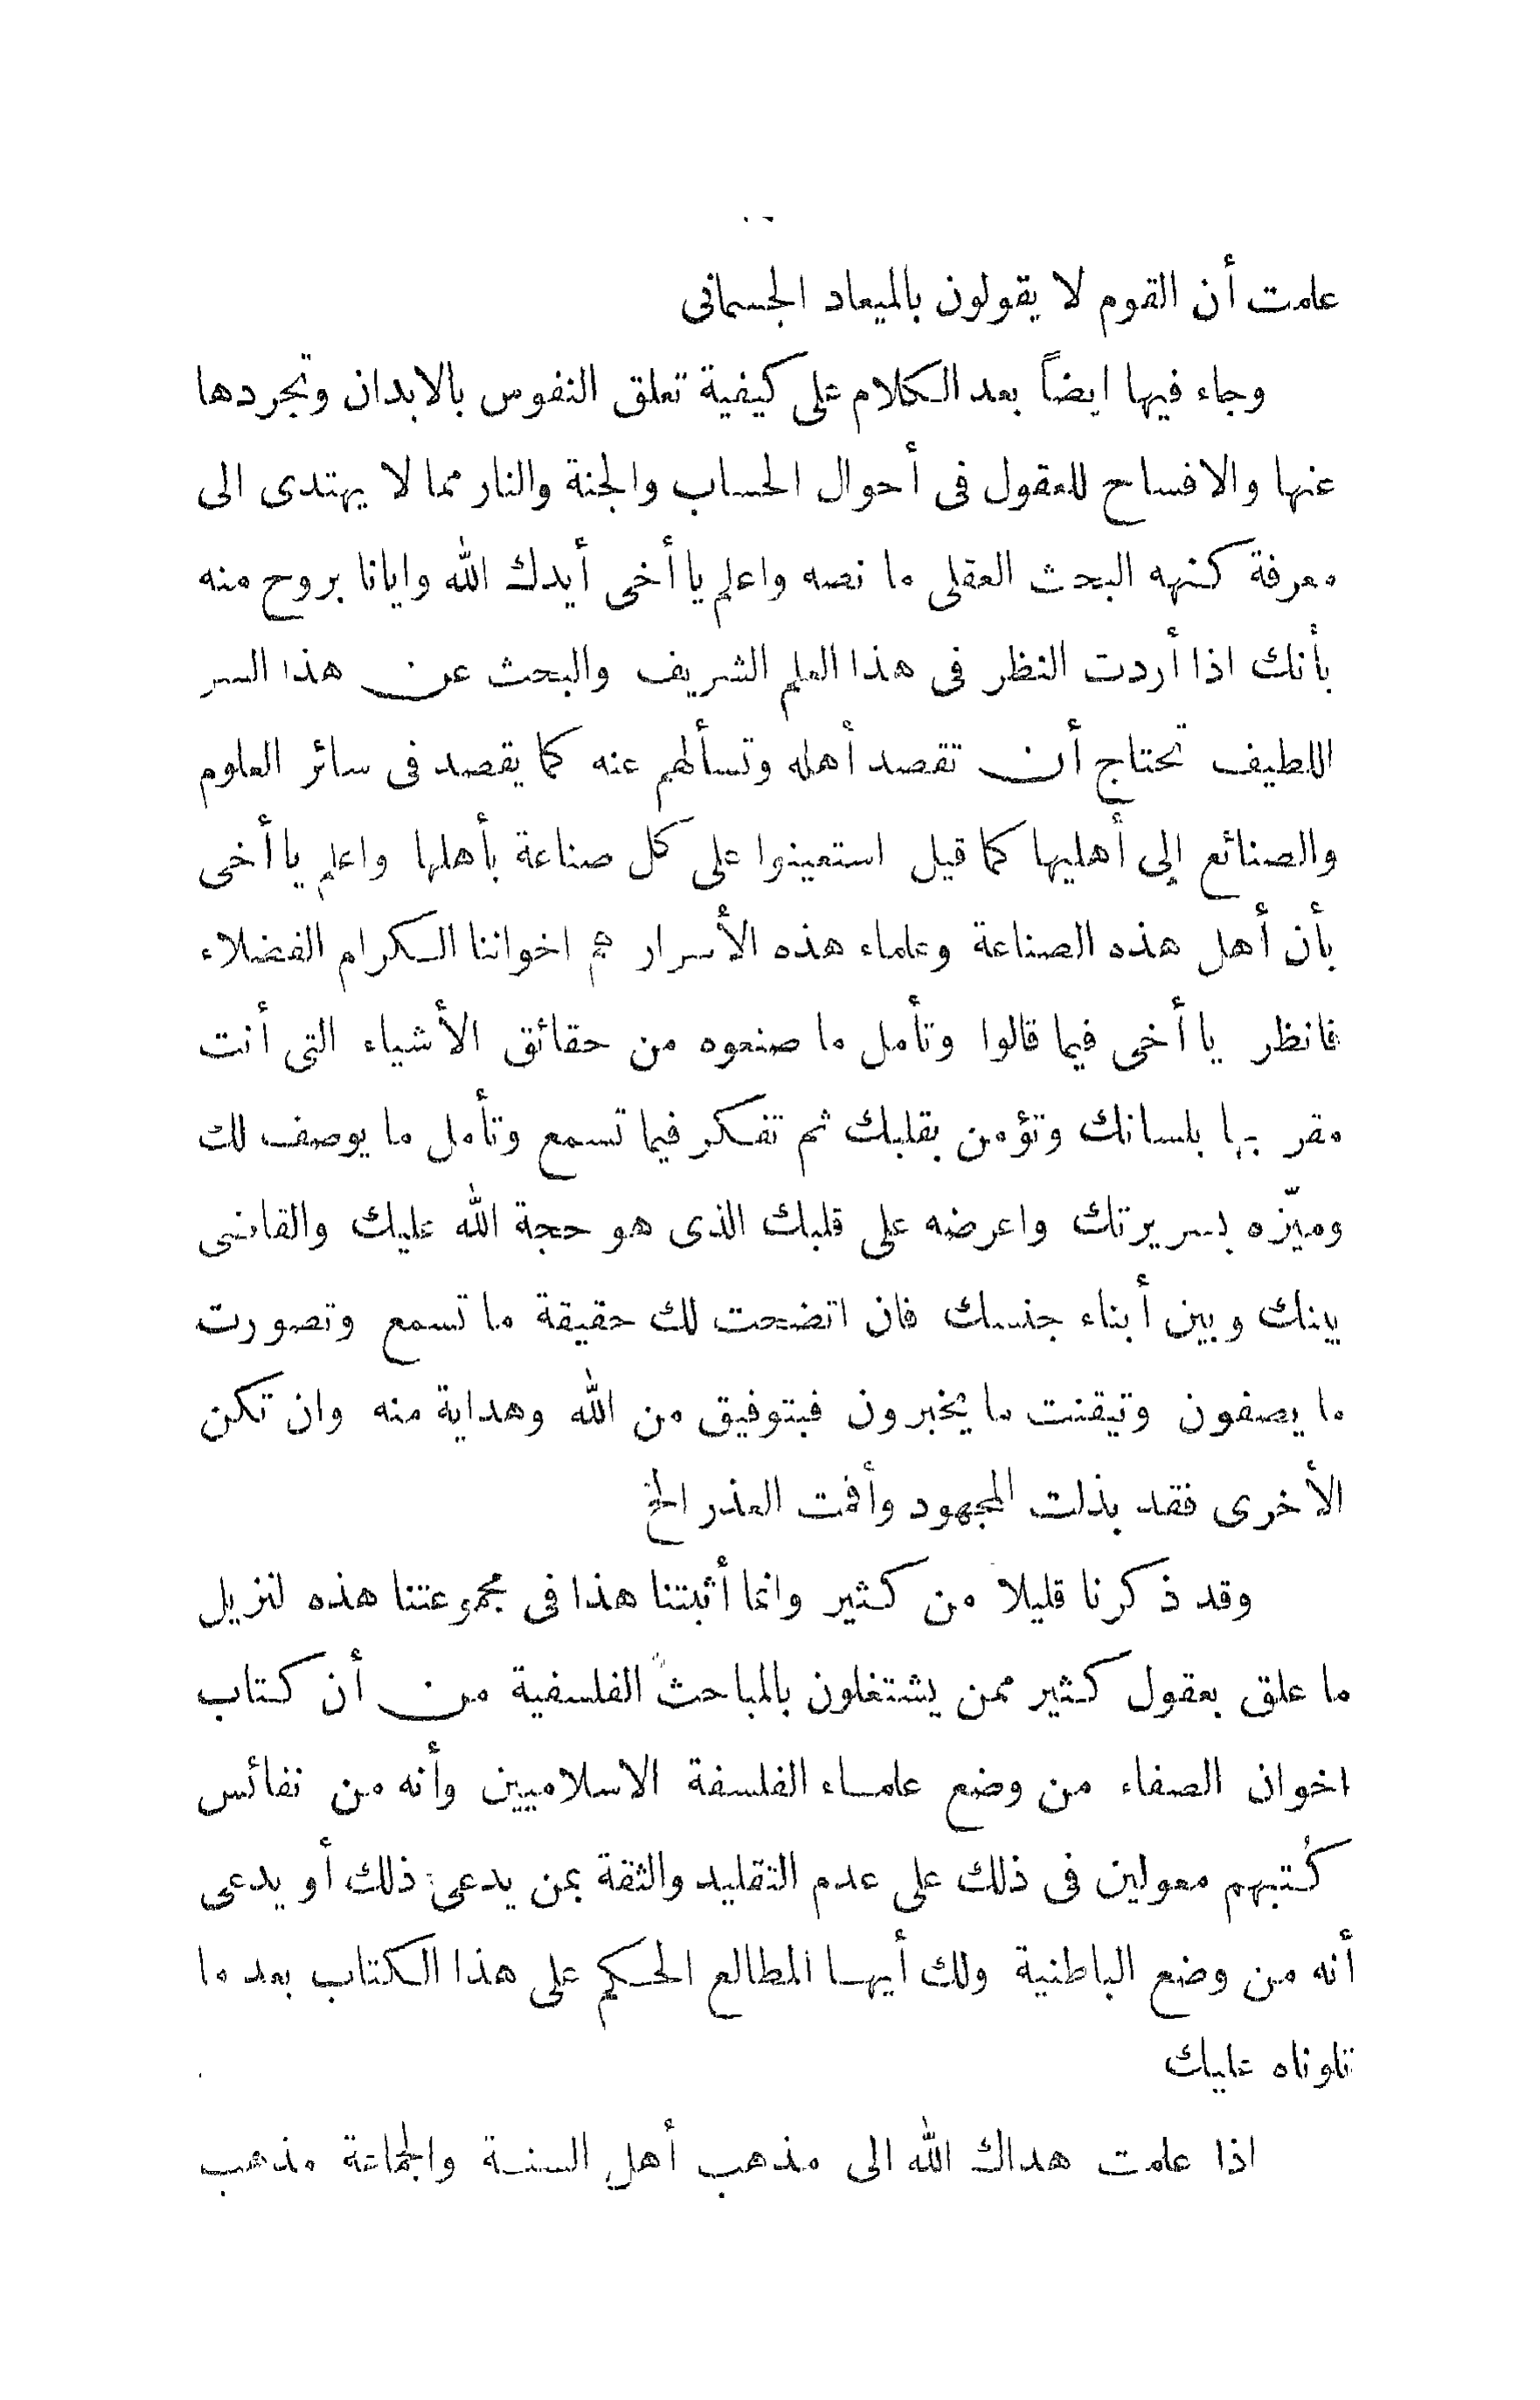 علمت أن القوم لا يقولون بالميعاد الجسمانى
وجاء فيها ايضاً بعد الكلام على كيفية تعلق النفوس بالابدان وتجردها
عنها والافساح للعقول فى أحوال الحساب والجنة والنار مما لا يهتدى الى
معرفة كنهه البحث العقلى ما نصه واعلم يا أخى أيدك الله وايانا بروح منه
بأنك اذا أردت النظر فى هذا العلم الشريف والبحث عن هذا السر
اللطيف تحتاج أن تقصد أهله وتسألهم عنه كما يقصد فى سائر العلوم
والصنائع إلى أهليها كما قيل استعينوا على كل صناعة بأهلها واعلم يا أخى
بأن أهل هذه الصناعة وعلماء هذه الأسرار هم اخواننا الكرام الفضلاء
فانظر يا أخى فيما قالوا وتأمل ما صنعوه من حقائق الأشياء التى أنت
مقر بها بلسانك وتؤمن بقلبك ثم تفكر فيما تسمع وتأمل ما يوصف لك
وميّزه بسريرتك واعرضه على قلبك الذى هو حجة الله عليك والقاضى
بينك وبين أبناء جنسك فان اتضحت لك حقيقة ما تسمع وتصورت
ما يصفون وتيقنت ما يخبرون فبتوفيق من الله وهداية منه وان تكن
الأخرى فقد بذلت المجهود وأقمت العذر الخ
وقد ذكرنا قليلا من كثير وانما أثبتنا هذا فى مجموعتنا هذه لنزيل
ما علق بعقول كثير ممن يشتغلون بالمباحث الفلسفية من أن كتاب
اخوان الصفاء من وضع علماء الفلسفة الاسلاميين وأنه من نفائس
كُتبهم معولين فى ذلك على عدم التقليد والثقة بمن يدعى ذلك أو يدعى
أنه من وضع الباطنية ولك أيها المطالع الحكم على هذا الكتاب بعد ما
تلوناه عليك
اذا علمت هداك الله الى مذهب أهل السنة والجماعة مذهب